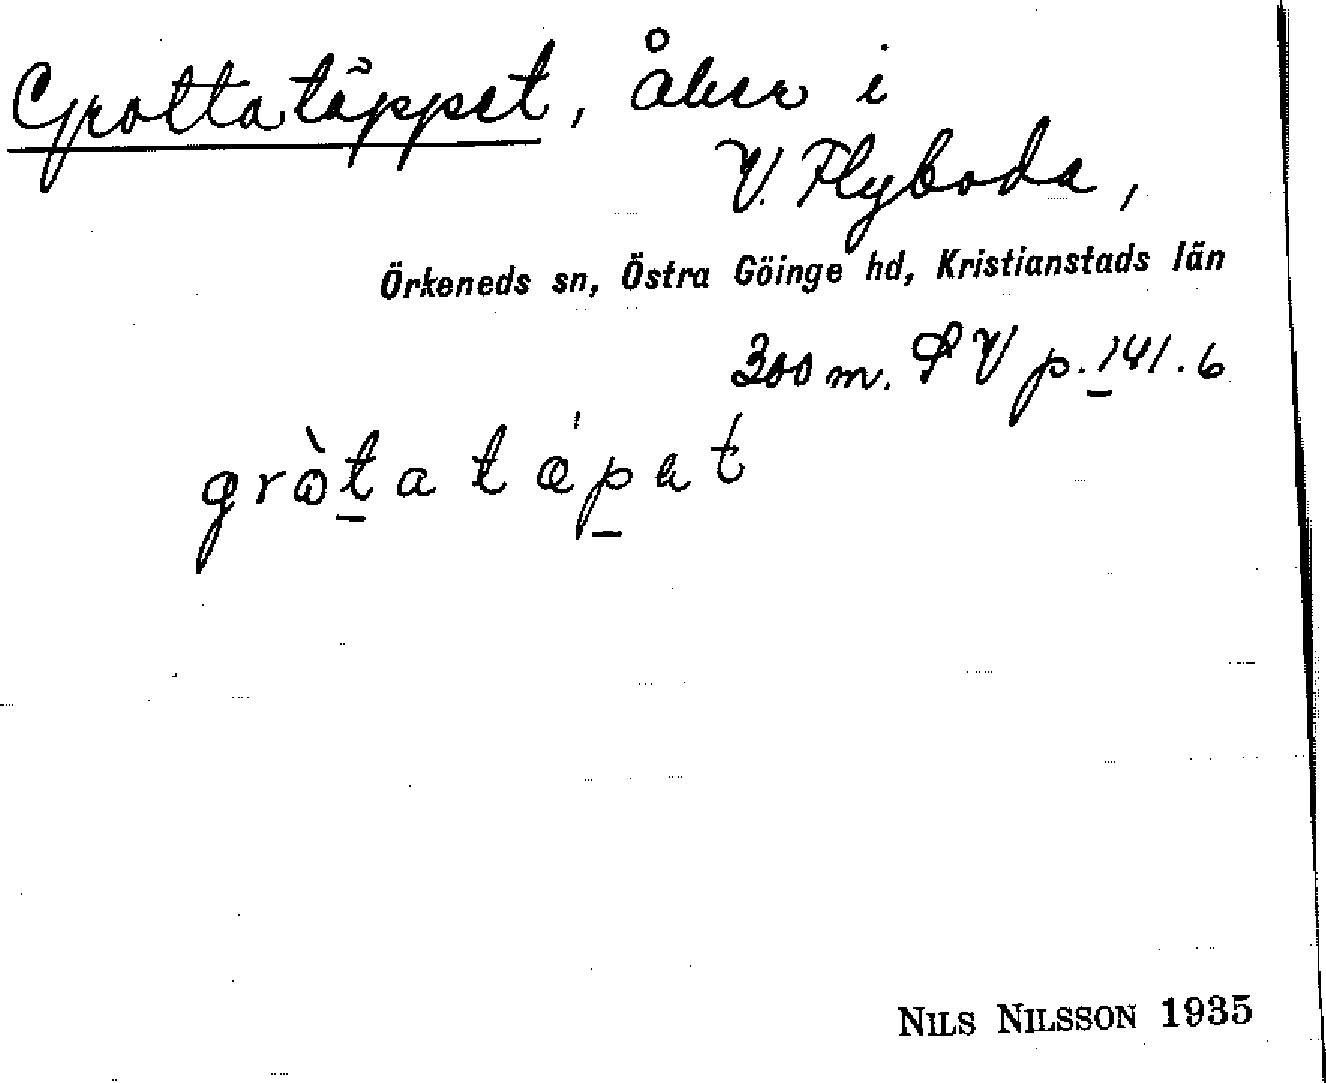 Grottatäppet, åker i
V. Flyboda,
Örkeneds sn, Östra Göinge hd, Kristianstads län
300 m. SV p. 141.6
gròt̠a tǽp̠et
NILS NILSSON 1935